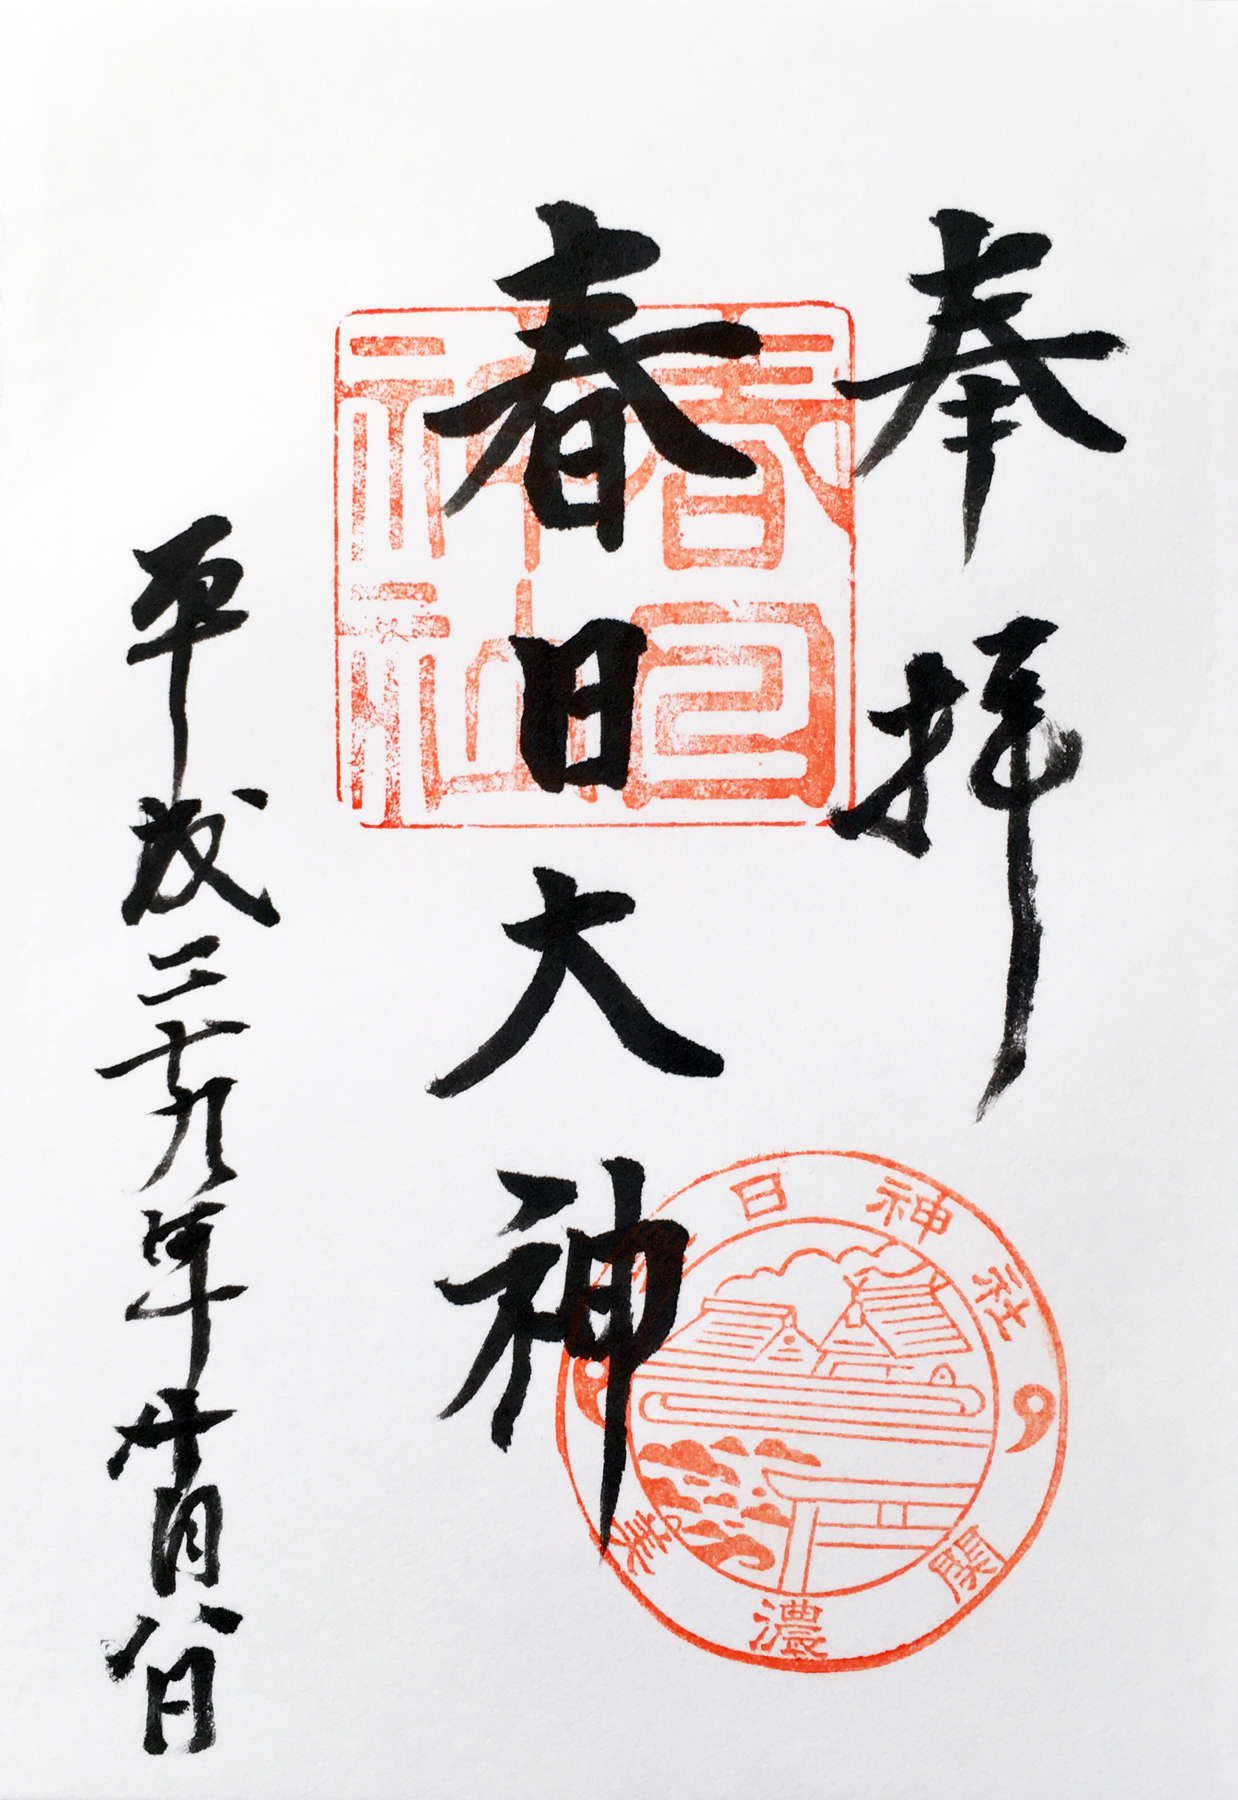 奉拝
春日大神
平成二十九年十月八日
春日
神社
日神社
美濃関